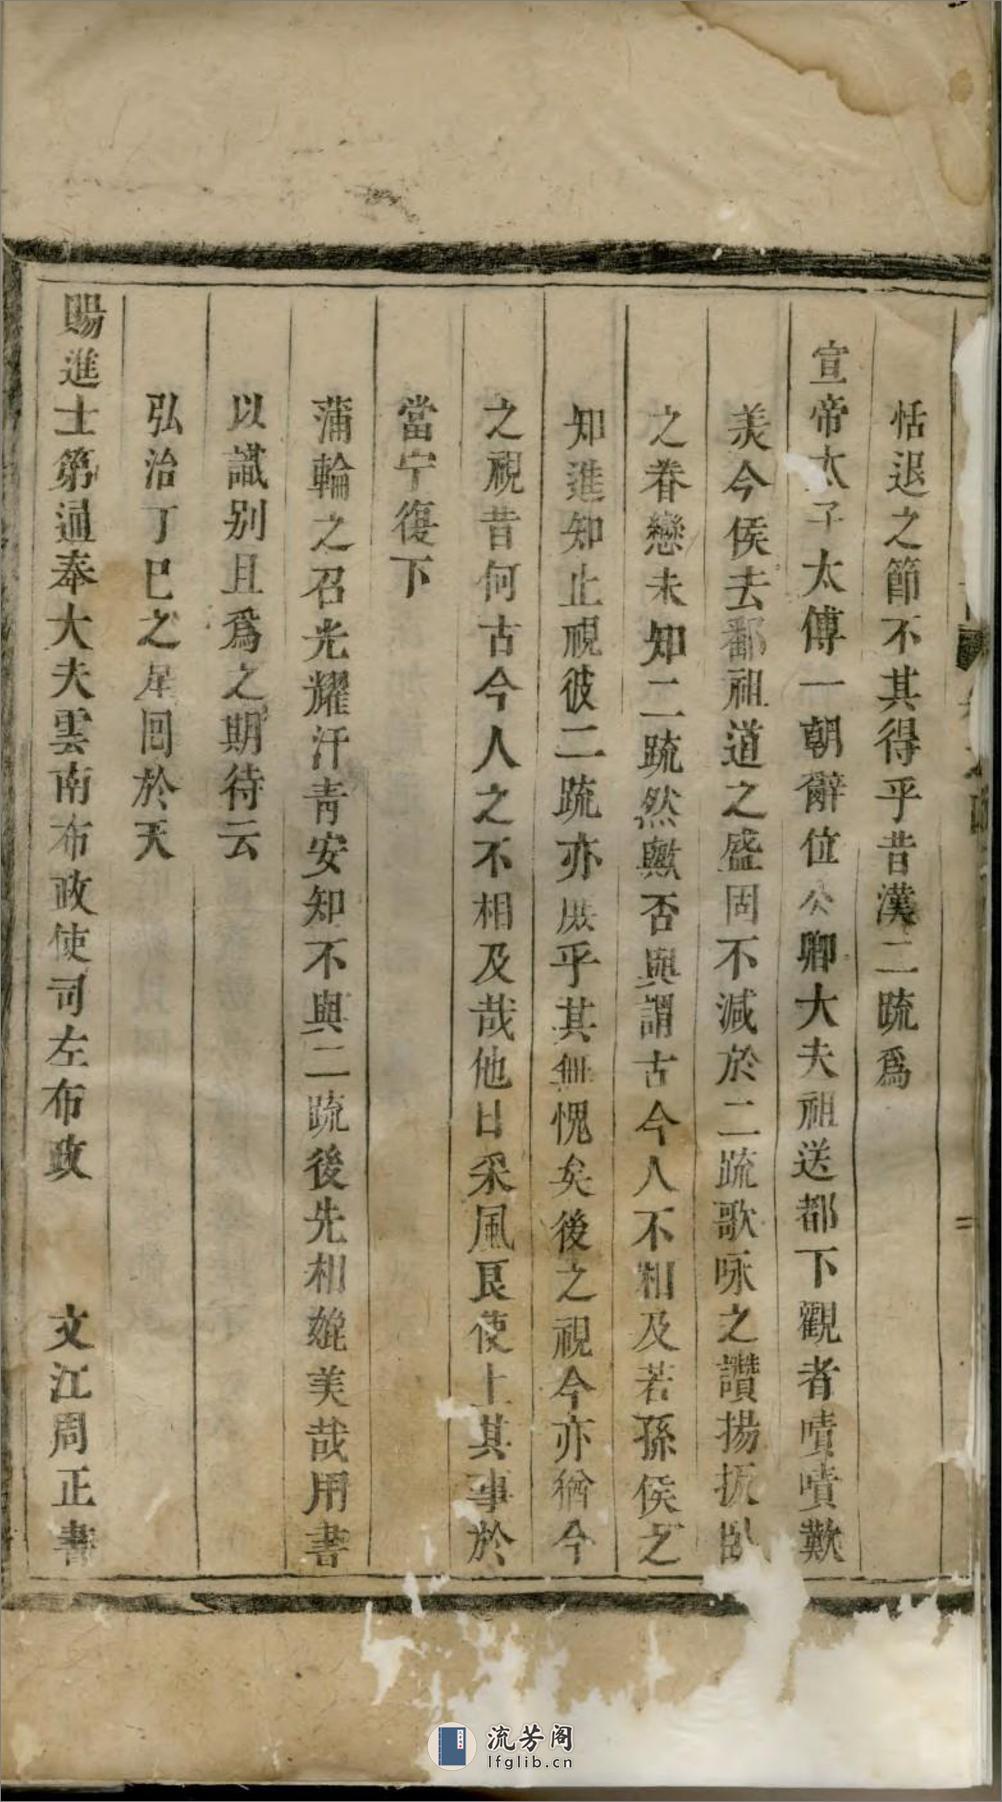 恬退之節不其得乎昔漢二疏爲
宣帝太子太傅一朝辭位公卿大夫祖送都下觀者嘖嘖歎
羨今侯去鄱祖道之盛固不減於二疏歌咏之讚揚扳臥
之眷戀未知二疏然歟否與謂古今人不相及若孫侯之
知進知止視彼二疏亦庶乎其無愧矣後之視今亦猶今
之視昔何古今人之不相及哉他日采風艮使上其事於
當宁復下
蒲輪之召光耀汗青安知不與二疏後先相媲美哉用書
以識别且爲之期待云
弘治丁巳之星回於天
賜進士第通奉大夫雲南布政使司左布政 文江周正書
流芳阁
lfglib.cn